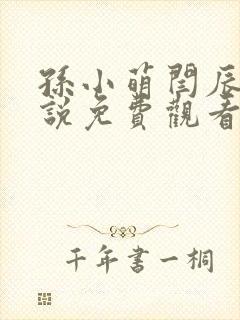 孫小萌閆辰
說免費觀看
千年書一桐